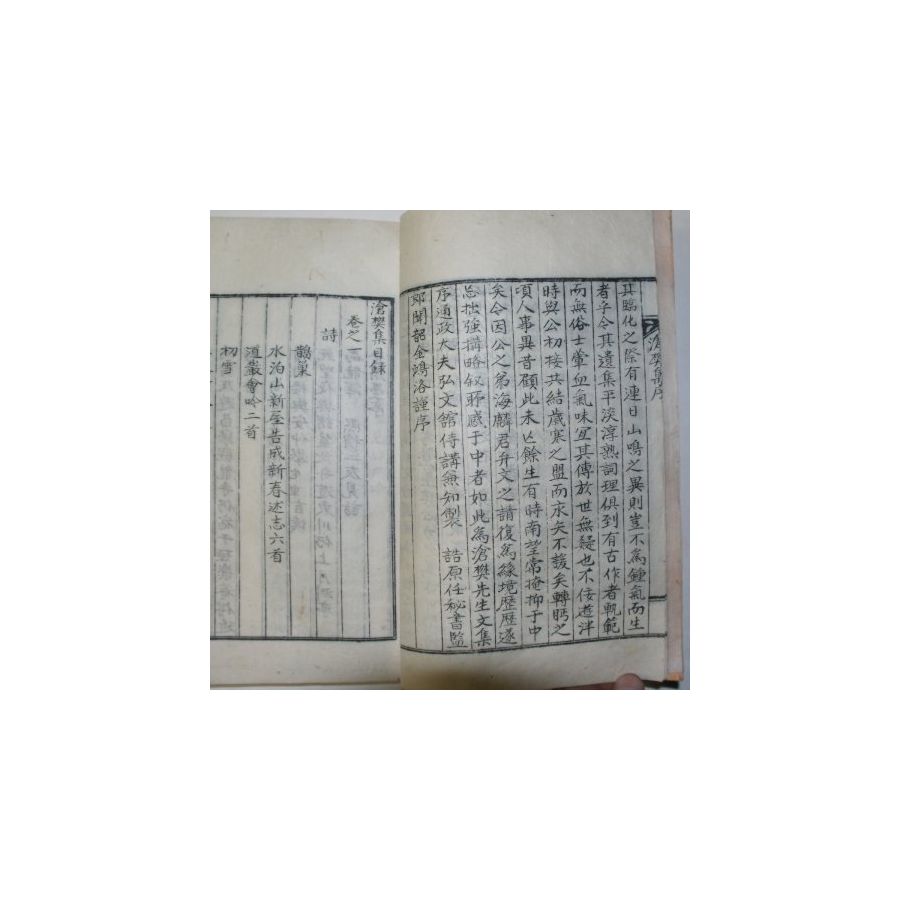 滄樊集序
其臨化之際有連日山鳴之異則豈不爲鍾氣而生
者乎今其遺集平淡淳熟詞理俱到有古作者軌範
而無俗士葷血氣味宜其傳於世無疑也不佞遊泮
時與公初接共結歲寒之盟而永矣不諼矣轉眄之
頃人事異昔顧此未亡餘生有時南望常掩抑于中
矣今因公之弟海麟君弁文之請復爲緣境歷歷遂
忘拙強搆略叙所感于中者如此爲滄樊先生文集
序通政大夫弘文舘侍講兼知製 誥原任秘書監
郎聞韶金鴻洛謹序
滄樊集目録
卷之一
詩
鵲巢
水泊山新屋告成新春述志六首
道巖會吟二首
初雪